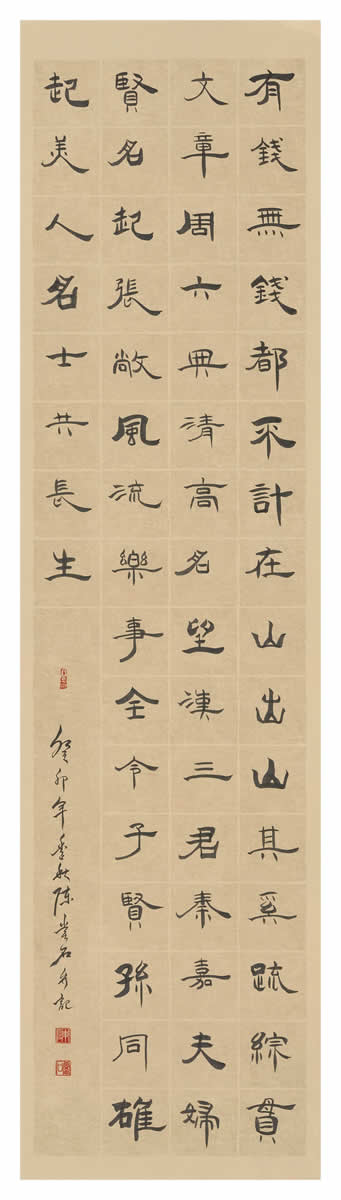 有錢無錢都不計在山出山其奚疏綜貫
文章周六典清高名望漢三君秦嘉夫婦
賢名起張敞風流樂事全令子賢孫同雄
起美人名士共長生
癸卯年季秋陳石記